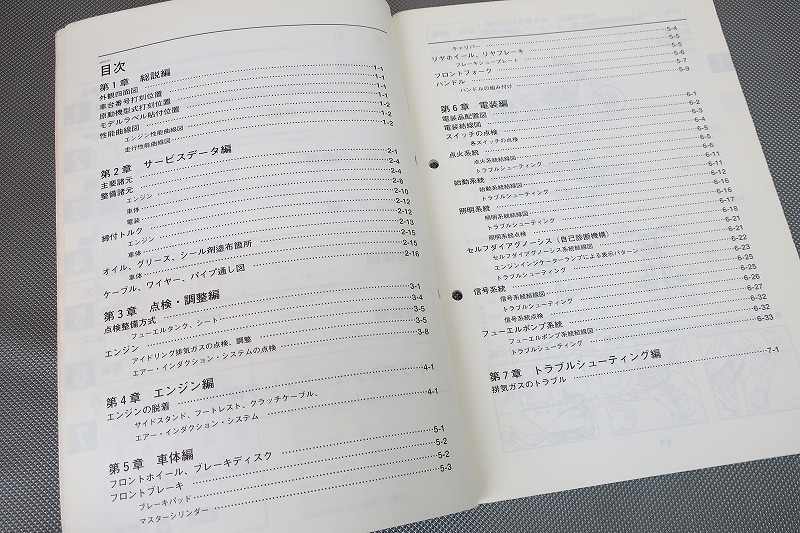 目次
第1章 総説編
外観四面図 1-1
車台番号打刻位置 1-1
原動機型式打刻位置 1-1
モデルラベル貼付位置 1-2
性能曲線図 1-2
エンジン性能曲線図
走行性能曲線図
第2章 サービスデータ編
主要諸元 2-1
整備諸元 2-4
エンジン 2-4
車体 2-8
電装 2-10
締付トルク 2-12
エンジン 2-12
車体 2-13
オイル、グリース、シール剤塗布箇所 2-15
車体 2-15
ケーブル、ワイヤー、パイプ通し図 2-16
第3章 点検・調整編
点検整備方式 3-1
フューエルタンク、シート 3-4
エンジン 3-5
アイドリング排気ガスの点検、調整 3-5
エアー・インダクション・システムの点検 3-8
第4章 エンジン編
エンジンの脱着 4-1
サイドスタンド、フートレスト、クラッチケーブル、
エアー・インダクション・システム 4-1
第5章 車体編
フロントホイール、ブレーキディスク 5-1
フロントブレーキ 5-2
ブレーキパッド 5-2
マスターシリンダー 5-3
キャリパー 5-4
リヤホイール、リヤブレーキ 5-5
ブレーキシュープレート 5-5
フロントフォーク 5-6
ハンドル 5-7
ハンドルの組み付け 5-9
第6章 電装編
電装品配置図 6-1
電装結線図 6-2
スイッチの点検 6-3
各スイッチの点検 6-4
点火系統 6-5
点火系統結線図 6-5
トラブルシューティング 6-6
始動系統 6-11
始動系統結線図 6-11
トラブルシューティング 6-12
照明系統 6-16
照明系統結線図 6-16
トラブルシューティング 6-17
照明系統点検 6-18
セルフダイアグノーシス（自己診断機構） 6-21
セルフダイアグノーシス系統結線図 6-21
エンジンインジケーターランプによる表示パターン 6-22
トラブルシューティング 6-23
信号系統 6-25
信号系統結線図 6-25
トラブルシューティング 6-26
信号系統点検 6-27
フューエルポンプ系統 6-32
フューエルポンプ系統結線図 6-32
トラブルシューティング 6-33
第7章 トラブルシューティング編
排気ガスのトラブル 7-1